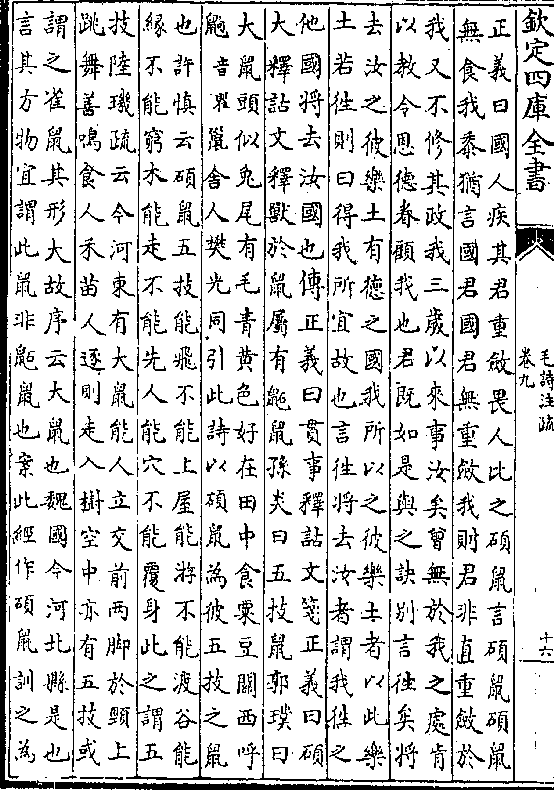 欽定四庫全書
毛詩注疏
卷九
十六
正義曰國人疾其君重斂畏人比之碩鼠言碩鼠碩鼠
無食我黍猶言國君國君無重斂我則君非直重斂於
我又不修其政我三歲以來事汝矣曾無於我之處肯
以教令恩德眷顧我也君既如是與之訣别言徃矣將
去汝之彼樂土有徳之國我所以之彼樂土者以此樂
土若徃則曰得我所宜故也言徃將去汝者謂我徃之
他國將去汝國也傳正義曰貫事釋詁文箋正義曰碩
大釋詁文釋獸於鼠屬有鼫鼠孫炎曰五技鼠郭璞曰
大鼠頭似兔尾有毛青黄色好在田中食粟豆關西呼
鼩音瞿鼠舍人樊光同引此詩以碩鼠為彼五技之鼠
也許慎云碩鼠五技能飛不能上屋能游不能渡谷能
緣不能窮木能走不能先人能穴不能覆身此之謂五
技陸璣疏云今河東有大鼠能人立交前兩脚於頸上
跳舞善鳴食人禾苗人逐則走入樹空中亦有五技或
謂之雀鼠其形大故序云大鼠也魏國今河北縣是也
言其方物宜謂此鼠非鼫鼠也案此經作碩鼠訓之為